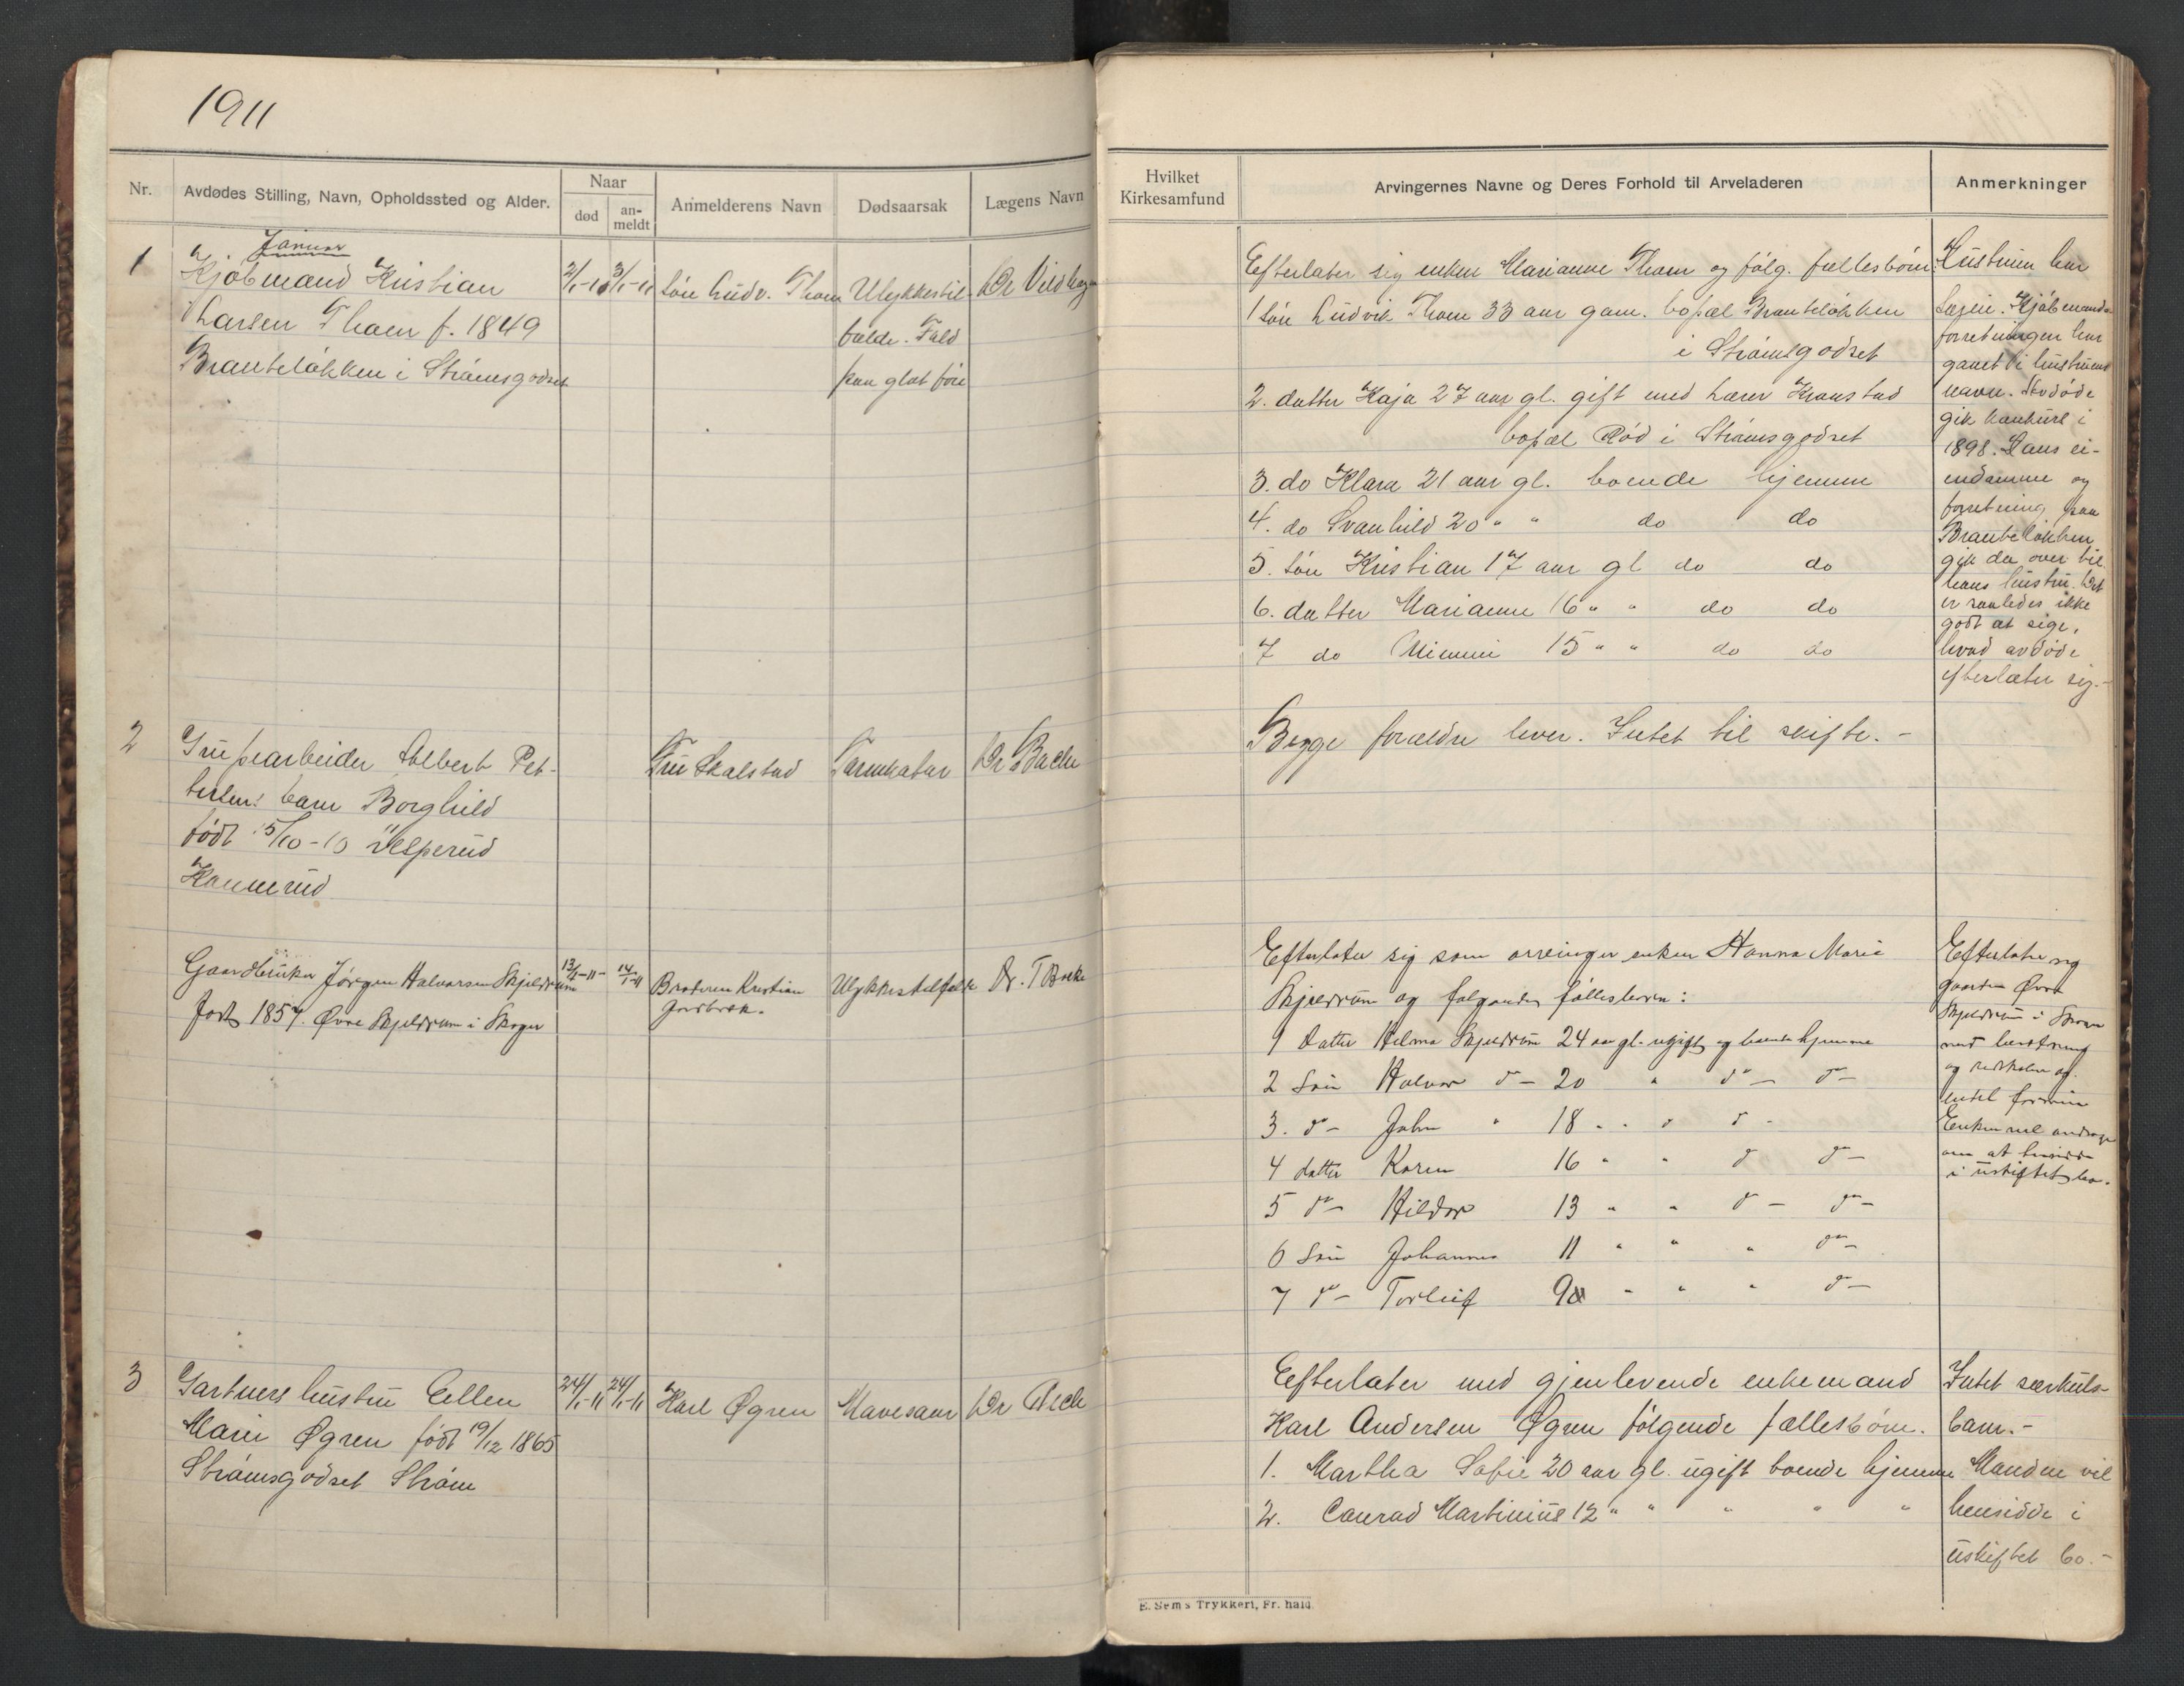 1911
Nr.
Avdødes Stilling, Navn, Opholdssted og Alder.
Naar
død
an-
meldt
Anmelderens Navn
Dødsaarsak
Lægens Navn
Januar
1
Kjøbmand Kristian
Larsen Thom f. 1849
Branteløkken i Strømsgodset
Søn Ludv. Thom
Ulykkestil-
fælde. Fald
paa glat føre
Dr
2
Albert Pet-
tersens barn Borghild
født 15/10-10 Jesperud
Konnerud
Fru Skalstad
Tarmkatar
Dr Bache
Gaardbruker Jørgen Halvorsen Skjeldrum
født 1857. Øvre Skjeldrum i Skoger
13/1-11-
14/1-11
Broderen Kristian
Ulykkestilfælde
Dr. T Bache
3
Gartners hustru Ellen
Marie Øgren født 19/12 1865
Strømsgodset Strøm
24/1-11
24/1-11
Karl Øgren
Mavesaar
Dr
Hvilket
Kirkesamfund
Arvingernes Navne og Deres Forhold til Arveladeren
Anmerkninger
Efterlater sig enken Marianne Thom og følg. fællesbørn:
1 søn Ludvik Thom 33 aar gam. bopæl Branteløkken
i Strømsgodset
2. datter Kaja 27 aar gl. gift med lærer Kronstad
bopæl Rød i Strømsgodset
3. do Klara 21 aar gl. boende hjemme
4. do Svanhild 20 " " do do
5. søn Kristian 17 aar gl do do
6. datter Marianne 16 " " do do
7 do Mimmi 15 " " do do
Hustruen har
Kjøbmands-
forretningen har
gaaet i hustruens
navn. Avdøde
gik konkurs i
1898. Hans ei-
endomme og
forretning paa
Branteløkken
gik da over til
hans hustru. Det
er saaledes ikke
godt at sige,
hvad avdøde
efterlater sig.-
Begge forældre lever. Intet til skifte. -
Efterlater sig som arvinger enken Hanna Marie
Skjeldrum og følgende fællesbørn:
1 Datter Helma Skjeldrum 24 aar gl. ugift og boende hjemme
2 Søn Halvor do - 20 " do - do -
3. do - John " 18 " " do do -
4 datter Karen 16 " " do do -
5 do - Hildur 13 " " do - do -
6 Søn Johannes 11 " " " do -
7 do - Torleif 9 " " " do -
Efterlater sig
gaarden Øvre
Skjeldrum i Skoger
med besætning
og redskaber og
endel formue
Enken vil andrage
om at hensidde
i uskiftet bo.
Efterlater med gjenlevende enkemand
Karl Andersen Øgren følgende fællesbørn.
1. Martha Sofie 20 aar gl. ugift boende hjemme
2. Conrad Martinius 12 " " " " "
Intet særkuls-
barn.-
Manden vil
hensidde i
uskiftet bo.-
E. Sem's Trykkeri, Fr.hald.